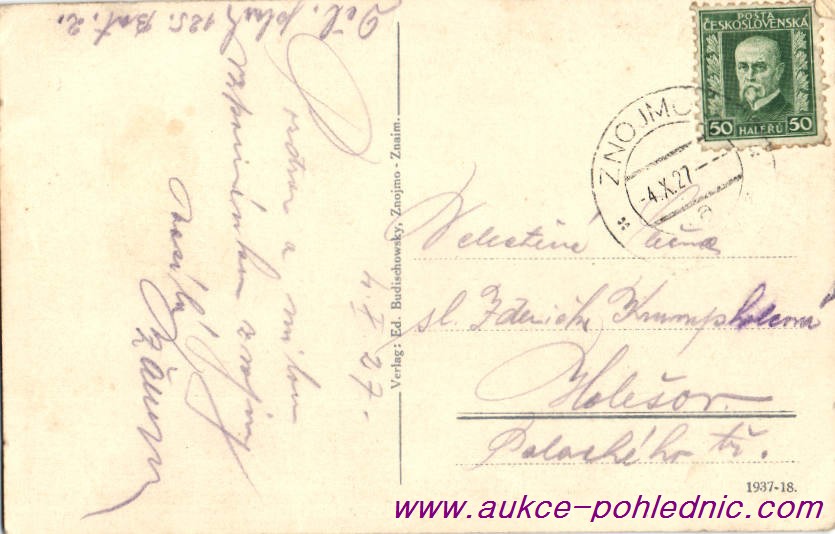 Děl. pluk 125. Bat. 2.
Pozdrav a milou
vzpomínku
zasílá
4.X.27.
Verlag: Ed. Budischowsky, Znojmo - Znaim.
POŠTA
ČESKOSLOVENSKÁ
50 HALÉŘŮ 50
ZNOJMO
-4.X.27--
Velectěná slečna
sl. Zdenička Krumpholcová
Holešov.
Palackého tř.
1937-18.
www.aukce-pohlednic.com